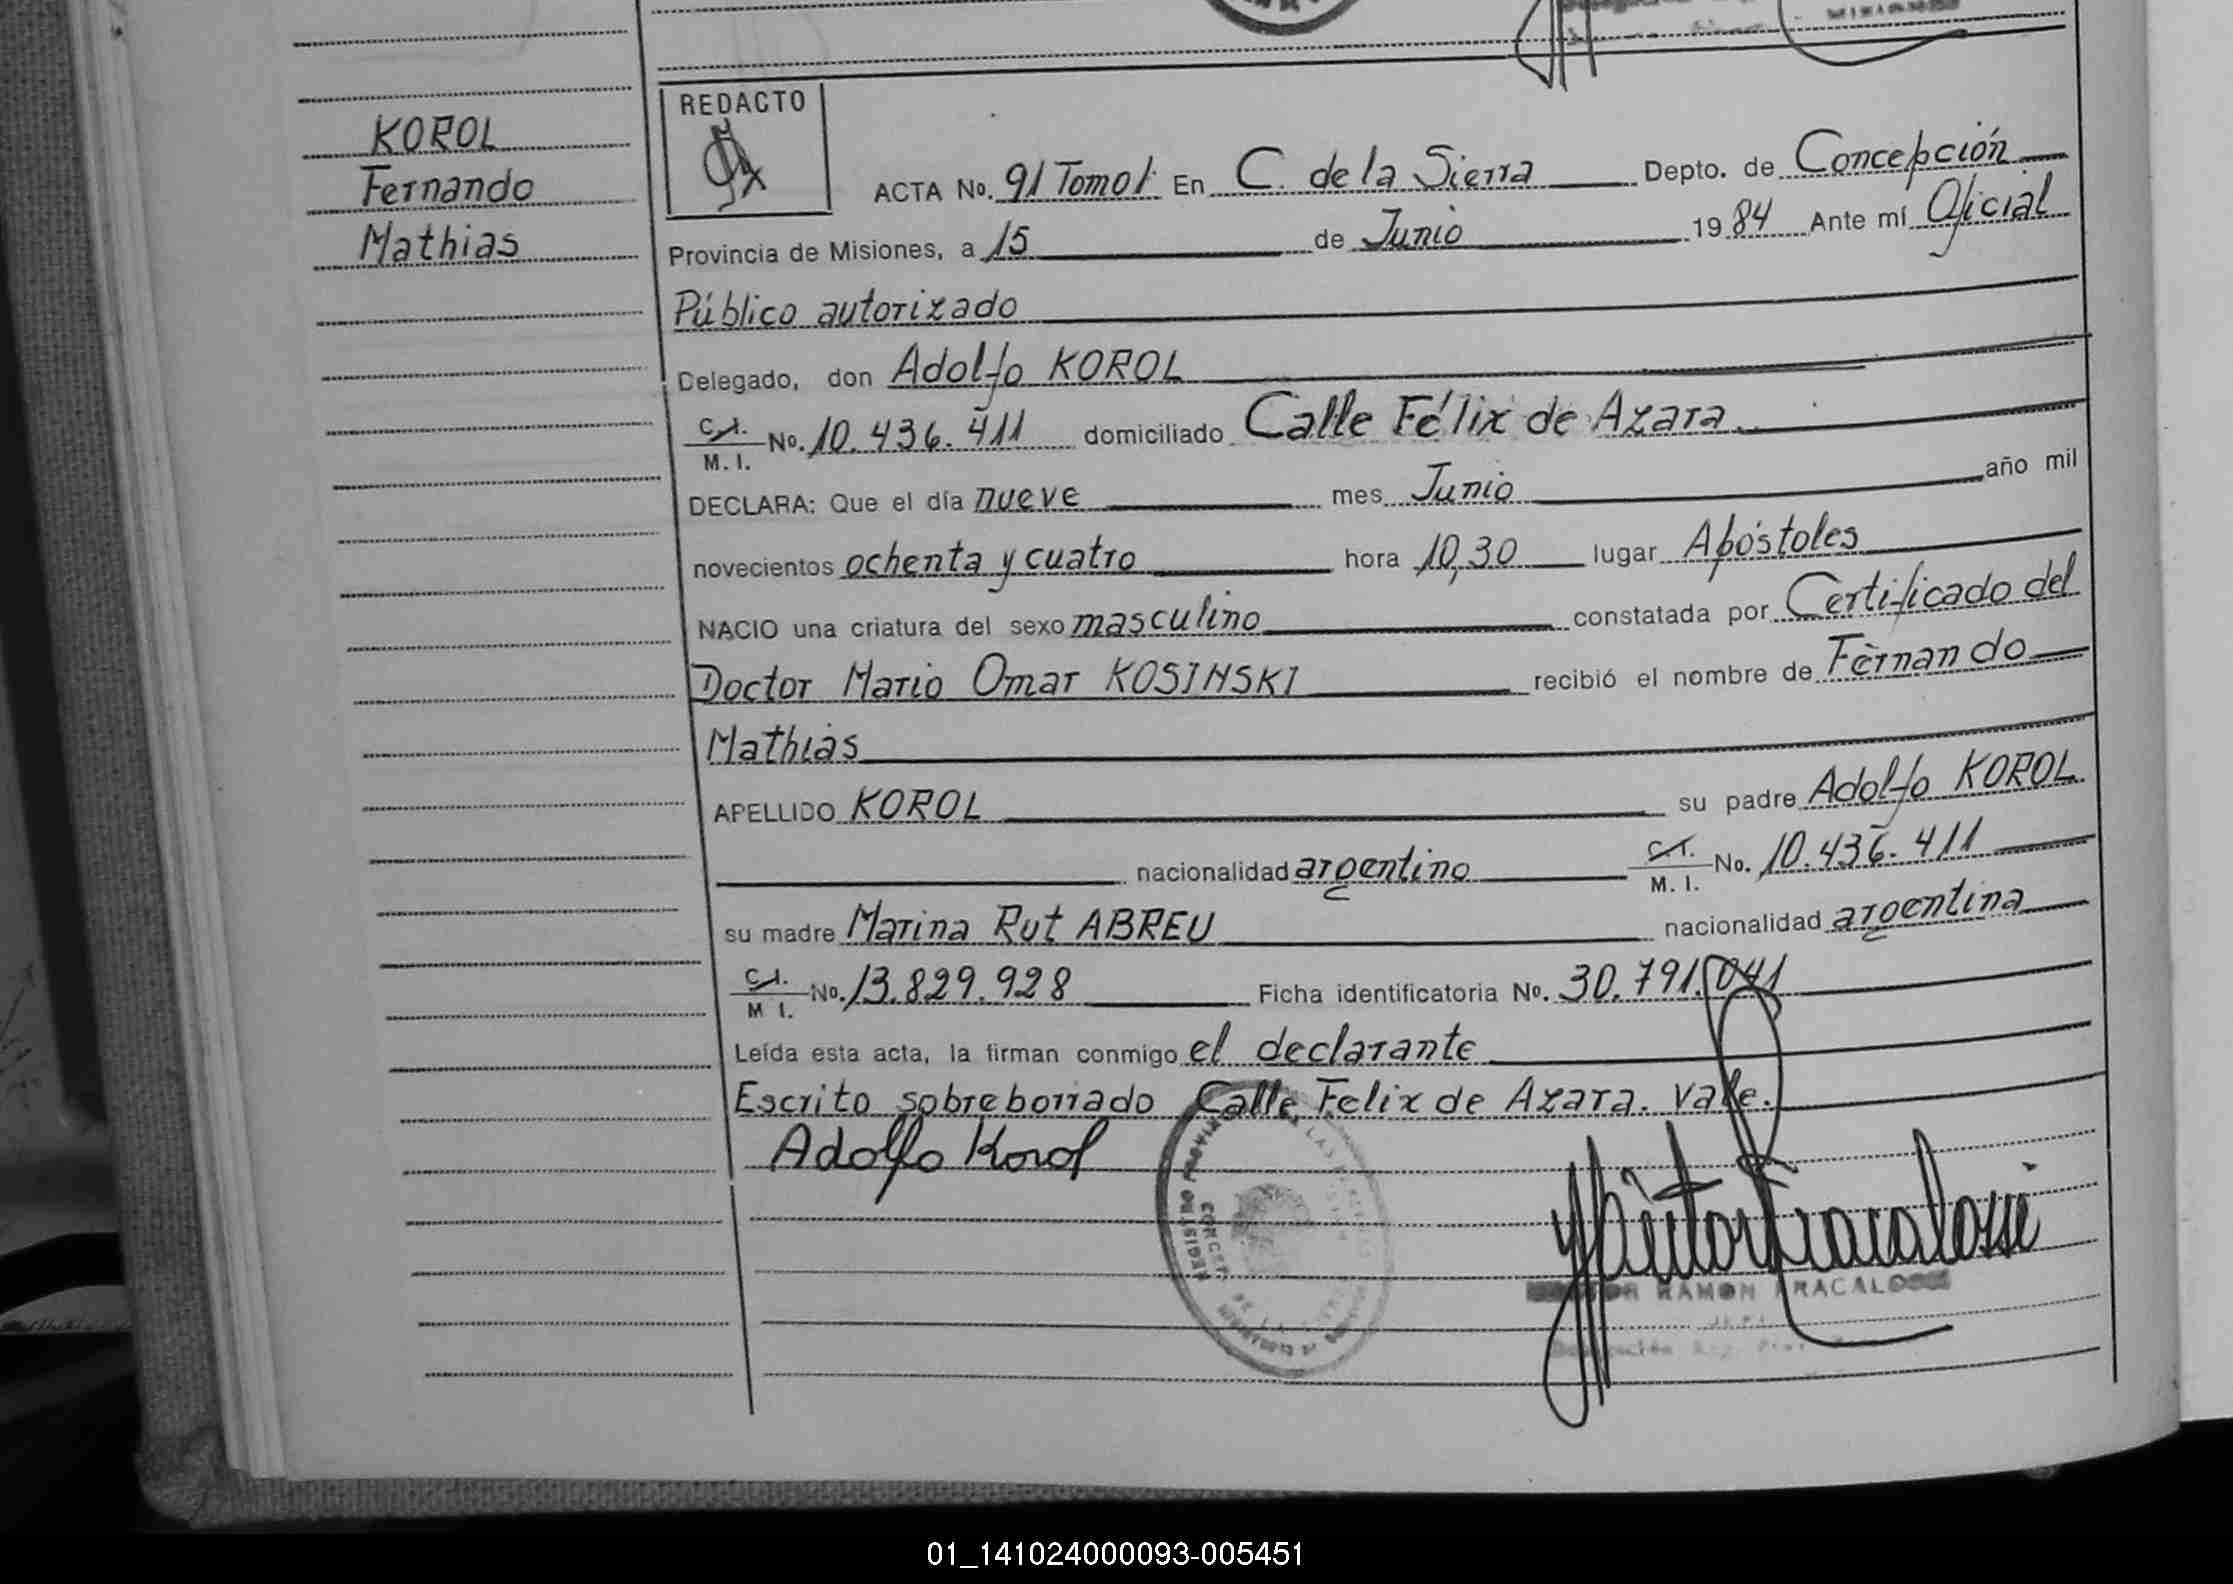 KOROL
Fernando
Mathias
REDACTO
ACTA No. 91 Tomo I En C. de la Sierra Depto. de Concepción
Provincia de Misiones, a 15 de Junio 1984 Ante mí Oficial
Público autorizado
Delegado, don Adolfo KOROL
C.I. M. I. No. 10.436.411 domiciliado Calle Félix de Azara
DECLARA: Que el día nueve mes Junio año mil
novecientos ochenta y cuatro hora 10,30 lugar Apóstoles
NACIO una criatura del sexo masculino constatada por Certificado del
Doctor Mario Omar KOSINSKI recibió el nombre de Fernando
Mathias
APELLIDO KOROL su padre Adolfo KOROL
nacionalidad argentino C.I. M. I. No. 10.436.411
su madre Marina Rut ABREU nacionalidad argentina
C.I. M I. No. 13.829.928 Ficha identificatoria No. 30.791.041
Leída esta acta, la firman conmigo el declarante
Escrito sobreborrado Calle Felix de Azara. Vale.
Adolfo Korol
RAMON FRACALOSSI
01_141024000093-005451